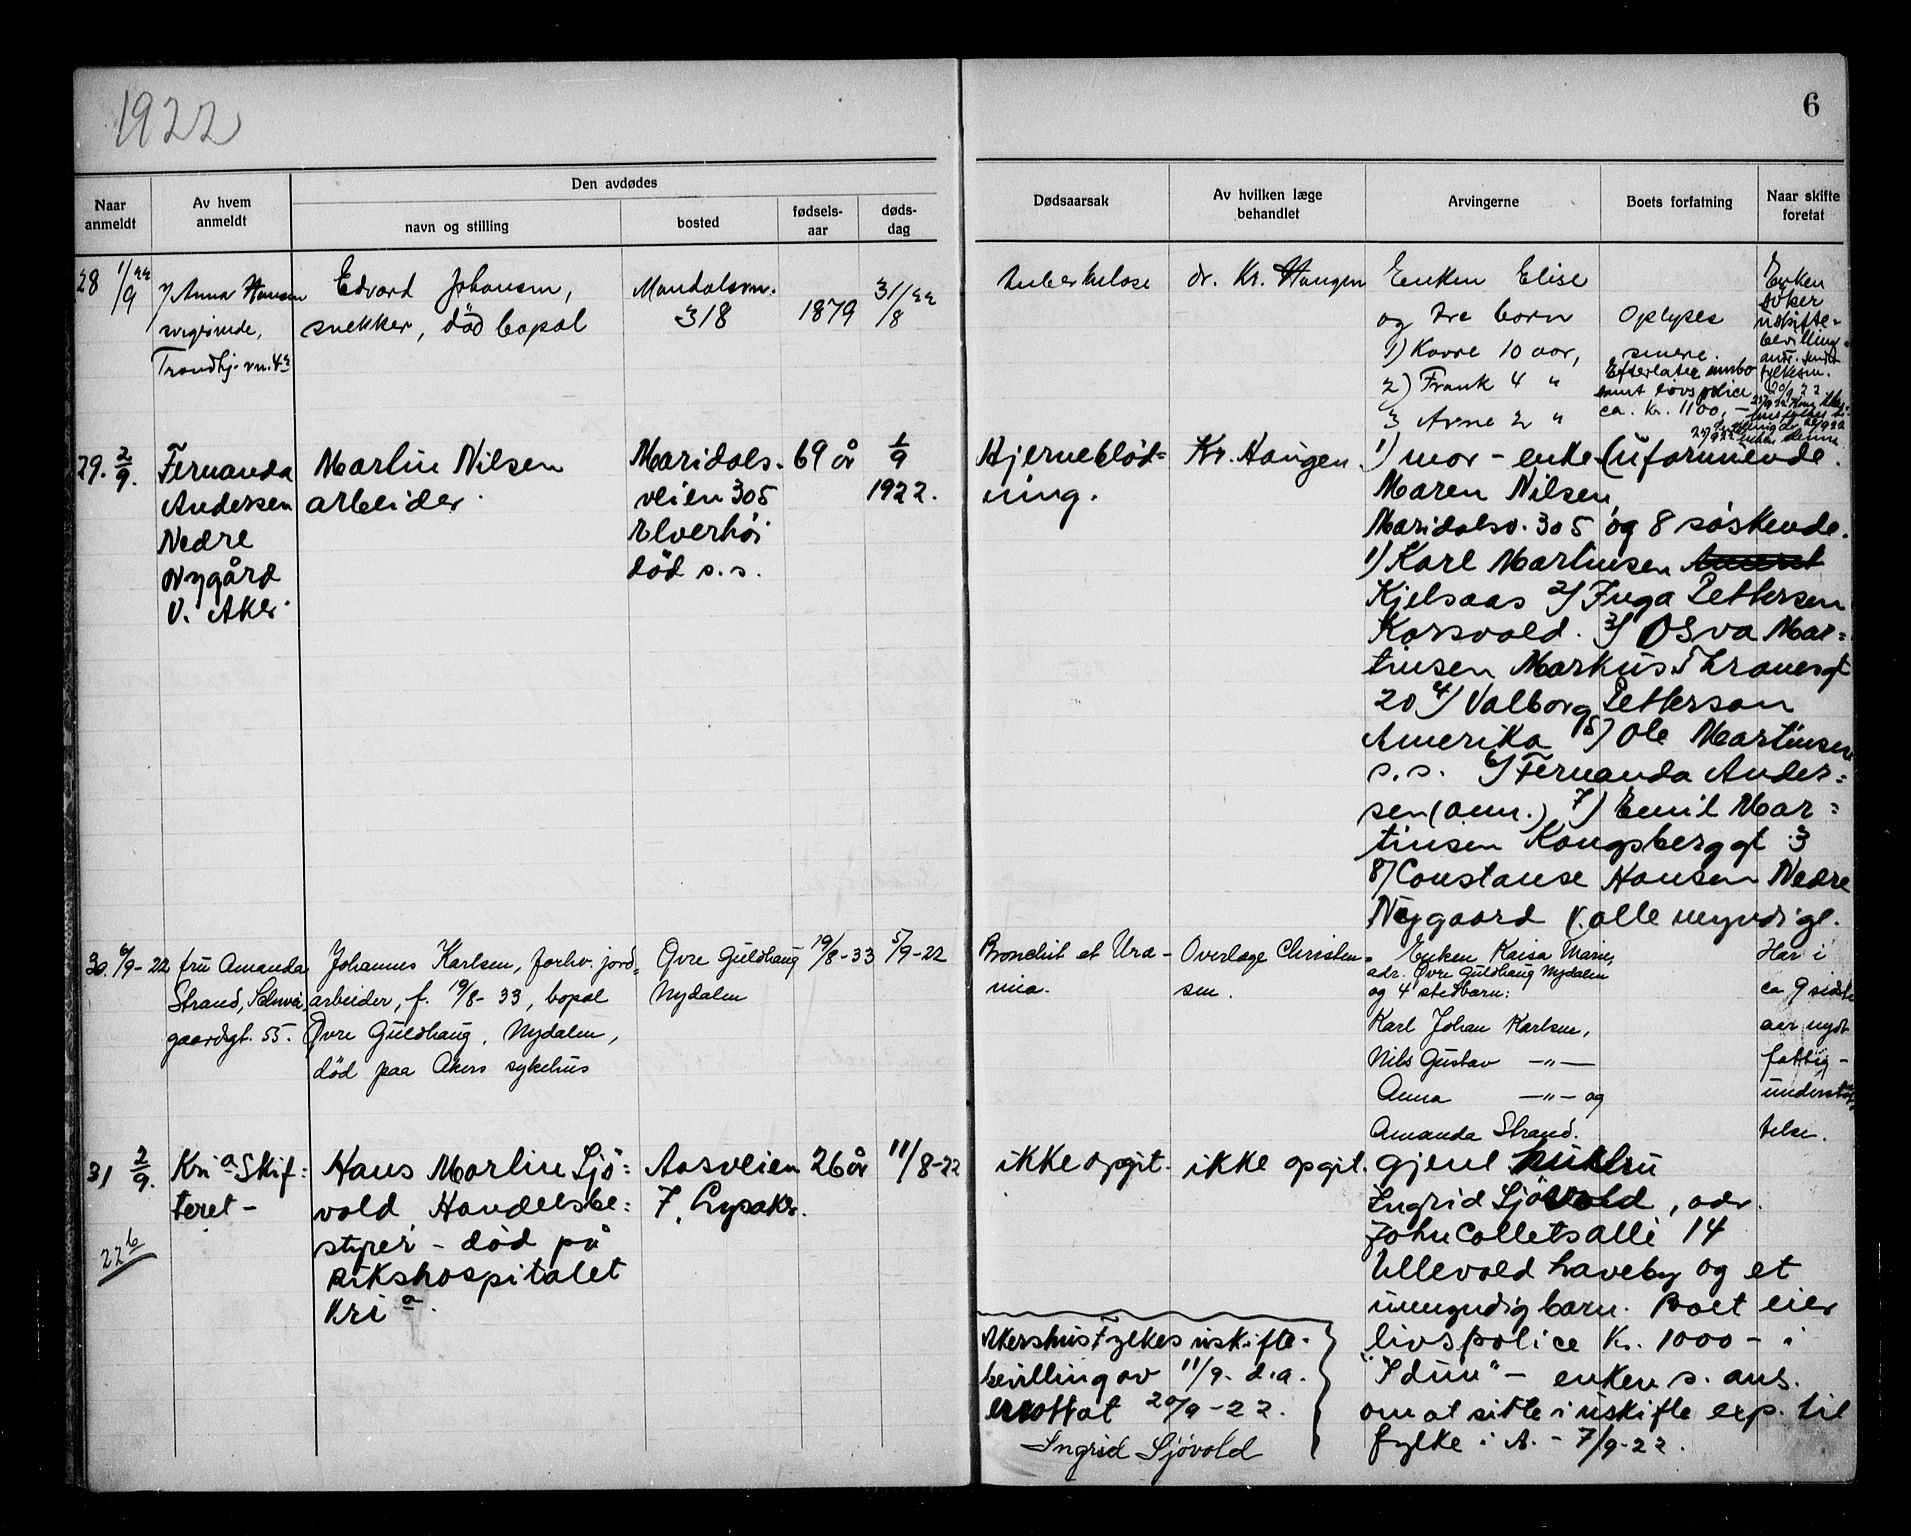 1922
6
Den avdødes
Naar anmeldt
Av hvem anmeldt
navn og stilling
bosted
fødsels-aar
døds-dag
Dødsaarsak
Av hvilken læge behandlet
Arvingerne
Boets forfatning
Naar skifte foretat
28 1/9 22
Anna Hansen
svigerinde,
Trondhj.vn. 4
Edvard Johansen,
snekker, død bopæl
Maridalsvn.
318
1879
31/8 22
tuberkulose
dr. Kr. Haugen
Enken Elise
og tre barn
1) Kaare 10 aar,
2) Frank 4 "
3 Arne 2 "
Oplyses
senere.
Efterlater innbo
samt livspolice
ca. kr. 1100,-
Enken
søker
uskifte-
bevilling.
29. 2/9.
Fernanda
Andersen
Nedre
Nygård
V. Aker.
Martin Nilsen
arbeider.
Maridals-
veien 305
Elverhøi
død s.s.
69 år
1/9
1922.
Hjerneblød=
ning.
Kr. Haugen.
1) mor - enke (uformuende.
Maren Nilsen,
Maridalsv. 305 og 8 søskende.
1) Karl Martinsen
Kjelsaas 2) Inga Pettersen
Korsvold. 3) Osva Mar=
tinsen Markus Thranesgt
20 4) Valborg Petterson
Amerika 5) Ole Martinsen
s.s. 6) Fernanda Ander=
sen (anm.) 7) Emil Mar=
tinsen Kongsberggt 3
8) Constanse Hansen Nedre
Nygaard (alle myndige.
30. 6/9-22
fru Amanda
Strand, Schwei-
gaardsgt. 55.
Johannes Karlsen, forhv. jord=
arbeider, f. 19/8-33, bopæl
Øvre Guldhaug, Nydalen,
død paa Akers sykehus
Øvre Guldhaug
Nydalen
19/8-33
5/9-22
Bronchit et Uræ-
mia.
Overlæge Christen=
sen.
Enken Kaisa Marie,
adr. Øvre Guldhaug Nydalen
og 4 stedbarn:
Karl Johan Karlsen,
Nils Gustav -"-
Anna -"- og
Amanda Strand.
Har i
ca 9 sidste
aar nydt
fattig-
understøt-
telse.
31 2/9.
22 b
Kria Skif=
teret -
Hans Martin Sjø=
vold Handelsbe=
styrer - død på
Rikshospitalet
Kria.
Aasveien
7, Lysaker.
26 år
11/8-22
ikke opgit.
ikke opgit.
gjenl.
Ingrid Sjøvold, adr.
John Collets alle 14
Ullevold haveby og et
umyndig barn. Boet eier
livspolice Kr. 1000 - i
"Idun" - enken s. ans.
om at sitte i uskifte exp. til
fylke i A. - 7/9-22.
Akershus Fylkes uskifte-
bevilling av 11/9. d.a.
er mottat 20/9-22.
Ingrid Sjøvold